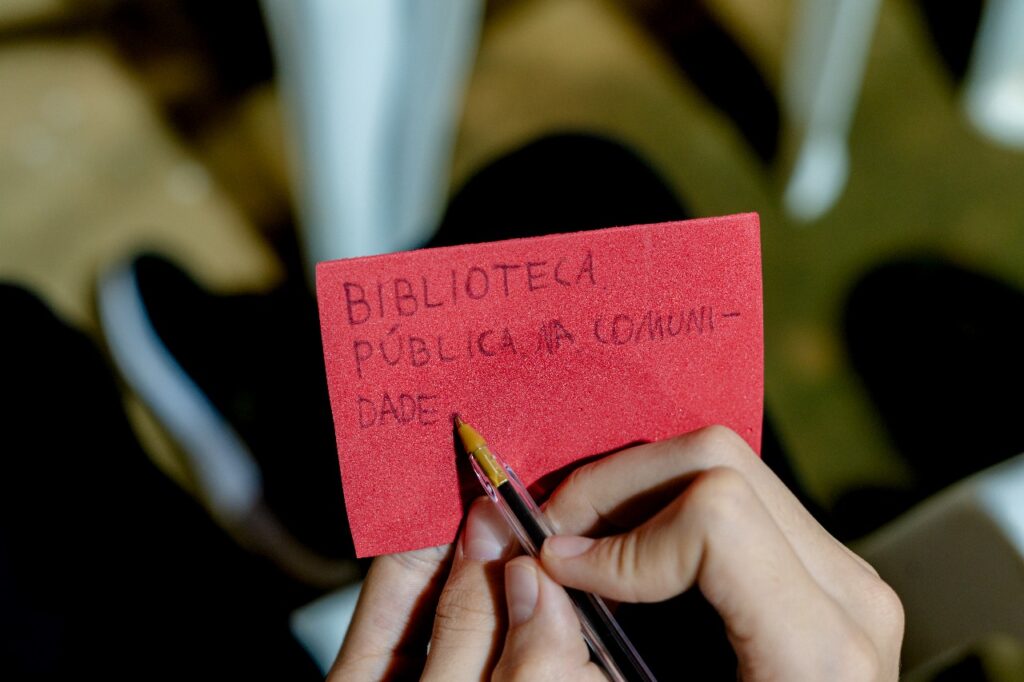 BIBLIOTECA
PÚBLICA NA COMUNI-
DADE